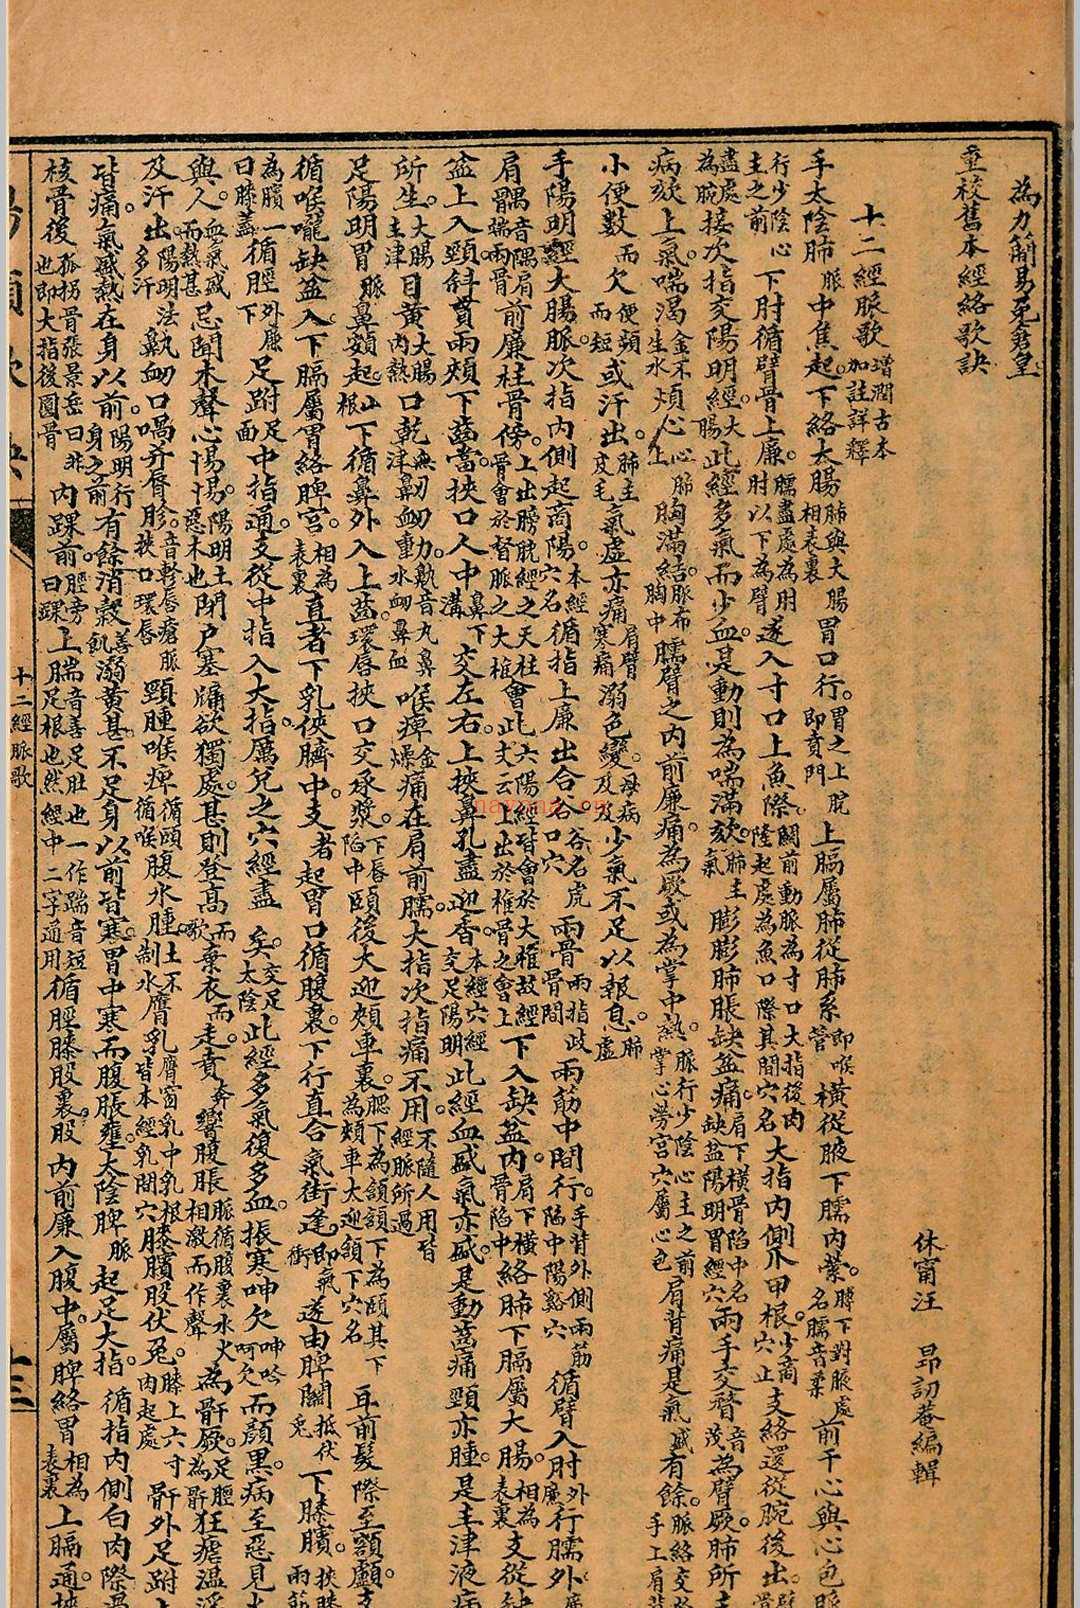 為力簡易免
重校舊本經絡歌訣
休甯汪 昂訒菴編輯
十二經脈歌 增潤古本 加註詳釋
手太陰肺脈中焦起。下絡大腸肺與大腸相表裏胃口行。胃之上脘即賁門上膈屬肺從肺系即喉管橫從腋下臑內縈。膊下對腋處名臑音柔前于心與心包脈
行少陰心主之前下肘循臂骨上廉。臑盡處為肘肘以下為臂遂入寸口上魚際。關前動脈為寸口大指後肉隆起處為魚口際其間穴名大指內側爪甲根。少商穴止支絡還從腕後出。
盡處為腕接次指交陽明經。大腸此經多氣而少血。是動則為喘滿欬。肺主氣膨膨肺脹缺盆痛。肩下橫骨陷中名缺盆陽明胃經穴兩手交瞀音茂為臂厥。肺所
病欬上氣。喘渴金不生水煩心心上肺胸滿結。脈布胸中臑臂之內前廉痛。為厥或為掌中熱。脈行少陰心主之前掌心勞宮穴屬心包肩背痛是氣盛有餘。脈絡交於手上肩背
小便數而欠便頻而短或汗出。肺主皮毛氣虛亦痛肩臂寒痛溺色變。母病及子少氣不足以報息。肺虛
手陽明經大腸脈。次指內側起商陽。本經穴名循指上廉出合谷谷名虎口穴兩骨兩指歧骨間兩筋中間行。手背外側兩筋陷中陽谿穴循臂入肘外廉行臑外
肩髃音隅肩端兩骨前廉柱骨傍。上出膀胱經之天柱骨會於督脈之大椎會此六陽經皆會於大椎故經文云上出於椎骨之會上下入缺盆內。肩下橫骨陷中絡肺下膈屬大腸。相為表裏支從缺
盆上入頸斜貫兩頰下齒當。挾口人中鼻下溝交左右。上挾鼻孔盡迎香。本經穴經交足陽明此經血盛氣亦盛。是動齒痛頸亦腫。是主津液病
所生。大腸主津目黃大腸內熱口乾無津鼽衄動。鼽音丸鼻水衄鼻血喉痺金燥痛在肩前臑。大指次指痛不用。不隨人用皆經脈所過
足陽明胃脈鼻頞起。山根下循鼻外入上齒。環唇挾口交承漿。下唇陷中頤後大迎頰車裏。腮下為頷頷下為頤其下為頰車大迎頷下穴名耳前髮際至額顱。支
循喉嚨缺盆入。下膈屬胃絡脾宮。相為表裏直者下乳俠臍中。支者起胃口循腹裏。下行直合氣街逢。即氣衝遂由脾關抵伏兔下膝臏。挾膝兩筋
為臏一曰膝蓋循脛外廉下足跗足面中指通。支從中指入大指。厲兌之穴經盡矣。交足太陰此經多氣復多血。振寒呻欠呻吟呵欠而顏黑。病至惡見火
與人。血氣盛而熱甚忌聞木聲心惕惕。陽明土惡木也閉戶塞牖欲獨處。甚則登高而歌棄衣而走。賁奔響腹脹脈循腹裏水火相激而作聲為骭厥。足脛為骭狂瘧溫淫
及汗出。陽明法多汗鼻鼽衄口喎并脣胗。音軫唇瘡脈挾口環唇頸腫喉痺循頤循喉腹水腫。土不制水膺乳膺窗乳中乳根皆本經乳間穴膝臏股伏兔。膝上六寸肉起處骭外足跗上
皆痛。氣盛熱在身以前。陽明行身之前有餘消穀善飢溺黃甚。不足身以前皆寒。胃中寒而腹脹壅。太陰脾脈起足大指。循指內側白肉際過
核骨後孤拐骨張景岳曰非也即大指後圓骨內踝前。脛旁曰踝上腨音善足肚也一作踹音短足根也然經中二字通用循脛膝股裏。股內前廉入腹中。屬脾絡胃相為表裏上膈通。挾
十二經脈歌